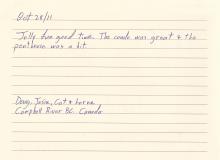 Oct 28/11
Jolly fun good time. The condo was great & the
penthouse was a hit.
Doug, Josie, Cat & Lorne
Campbell River BC. Canada